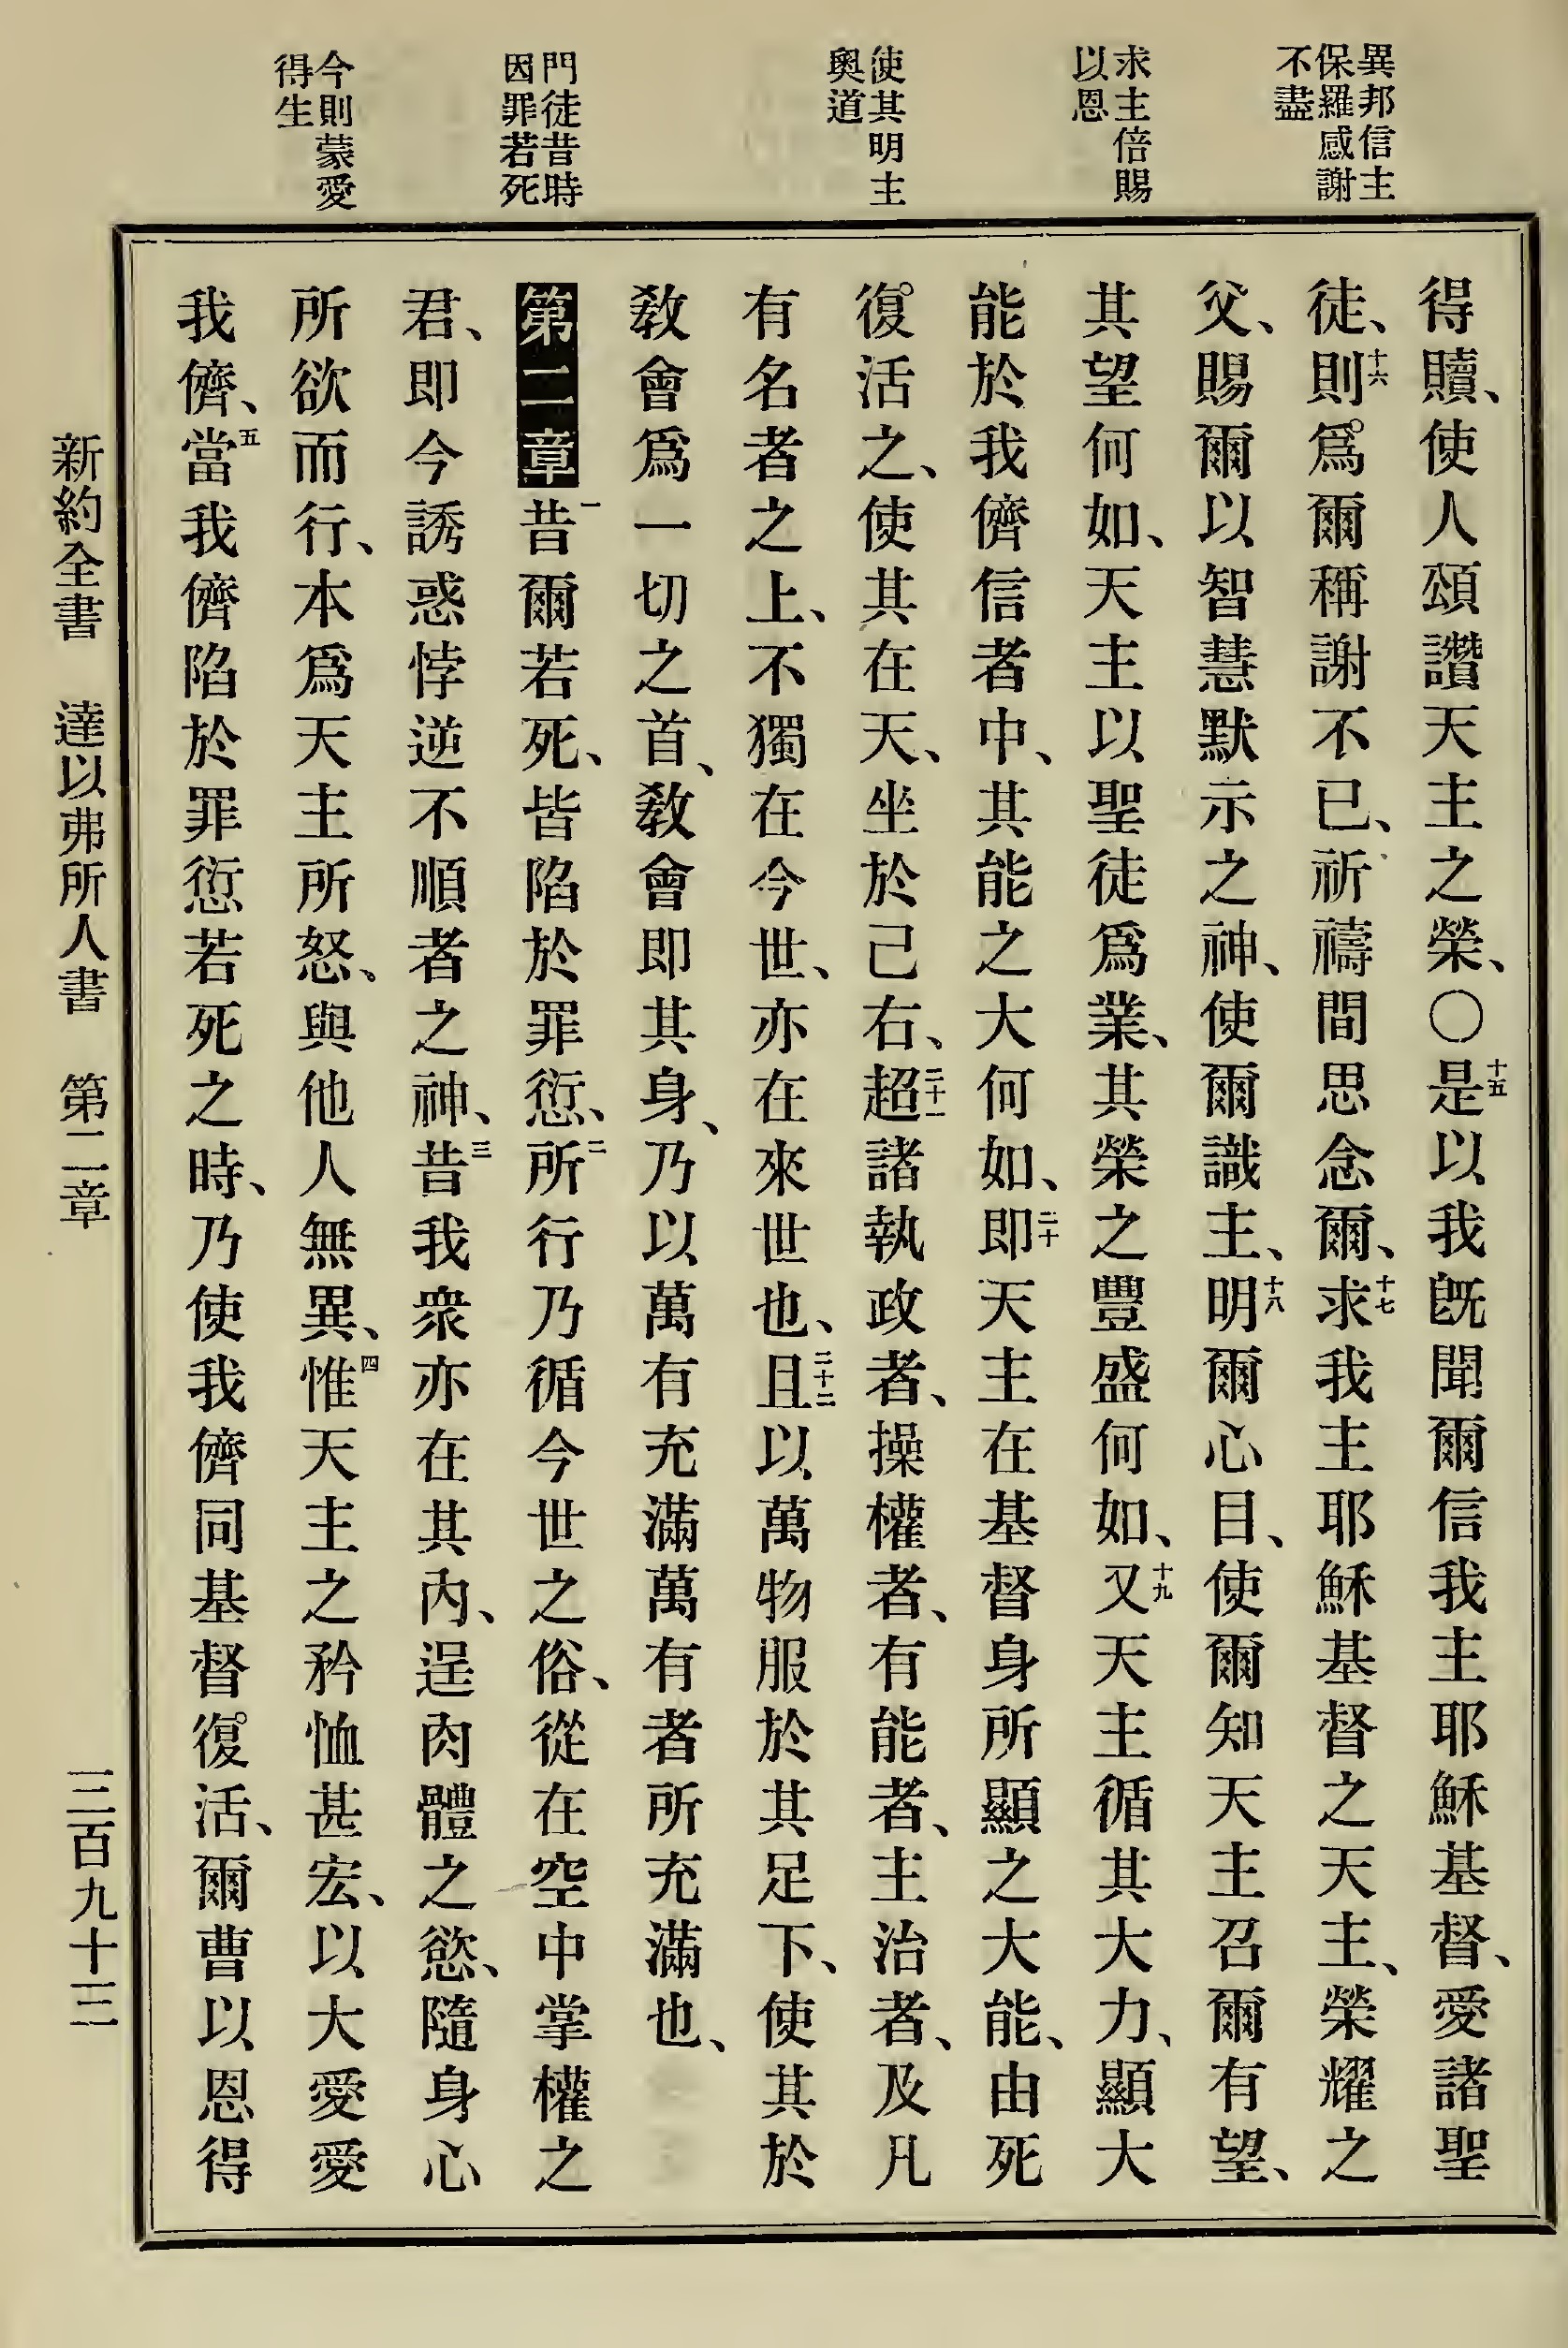 異邦信主
保羅感謝
不盡
求主倍賜
以恩
使其明主
奧道
門徒昔時
因罪若死
今則蒙愛
得生
得贖、使人頌讚天主之榮、〇十五是以我旣聞爾信我主耶穌基督、愛諸聖
徒、十六則爲爾稱謝不已、祈禱間思念爾、十七求我主耶穌基督之天主、榮耀之
父、賜爾以智慧默示之神、使爾識主、十八明爾心目、使爾知天主召爾有望、
其望何如、天主以聖徒爲業、其榮之豐盛何如、十九又天主循其大力、顯大
能於我儕信者中、其能之大何如、二十即天主在基督身所顯之大能、由死
復活之、使其在天、坐於己右、二十一超諸執政者、操權者、有能者、主治者、及凡
有名者之上、不獨在今世、亦在來世也、二十二且以萬物服於其足下、使其於
敎會爲一切之首、敎會即其身、乃以萬有充滿萬有者所充滿也、
第二章一昔爾若死、皆陷於罪愆、二所行乃循今世之俗、從在空中掌權之
君、即今誘惑悖逆不順者之神、三昔我衆亦在其內、逞肉體之慾、隨身心
所欲而行、本爲天主所怒、與他人無異、四惟天主之矜恤甚宏、以大愛愛
我儕、五當我儕陷於罪愆若死之時、乃使我儕同基督復活、爾曹以恩得
新約全書 達以弗所人書 第二章 三百九十三